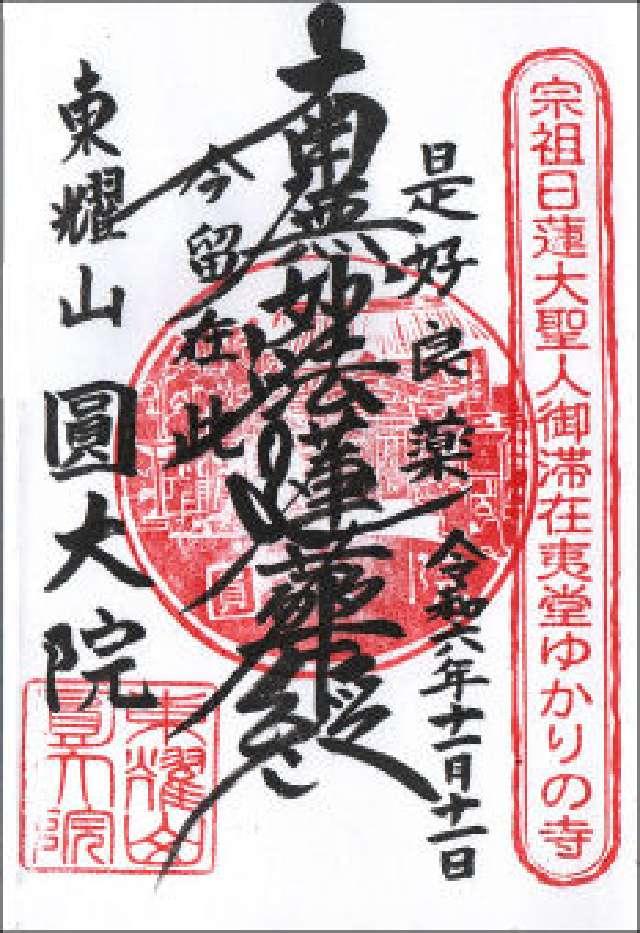 宗祖日蓮大聖人御滞在夷堂ゆかりの寺
是好良薬
令和六年十一月十一日
南無妙法蓮華経
今留在此
東耀山
圓大院
東耀山
圓大院